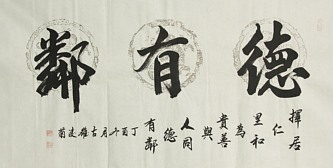 德有鄰
擇居
仁
里和
為
貴善
與
人同
德
有鄰
丁酉年